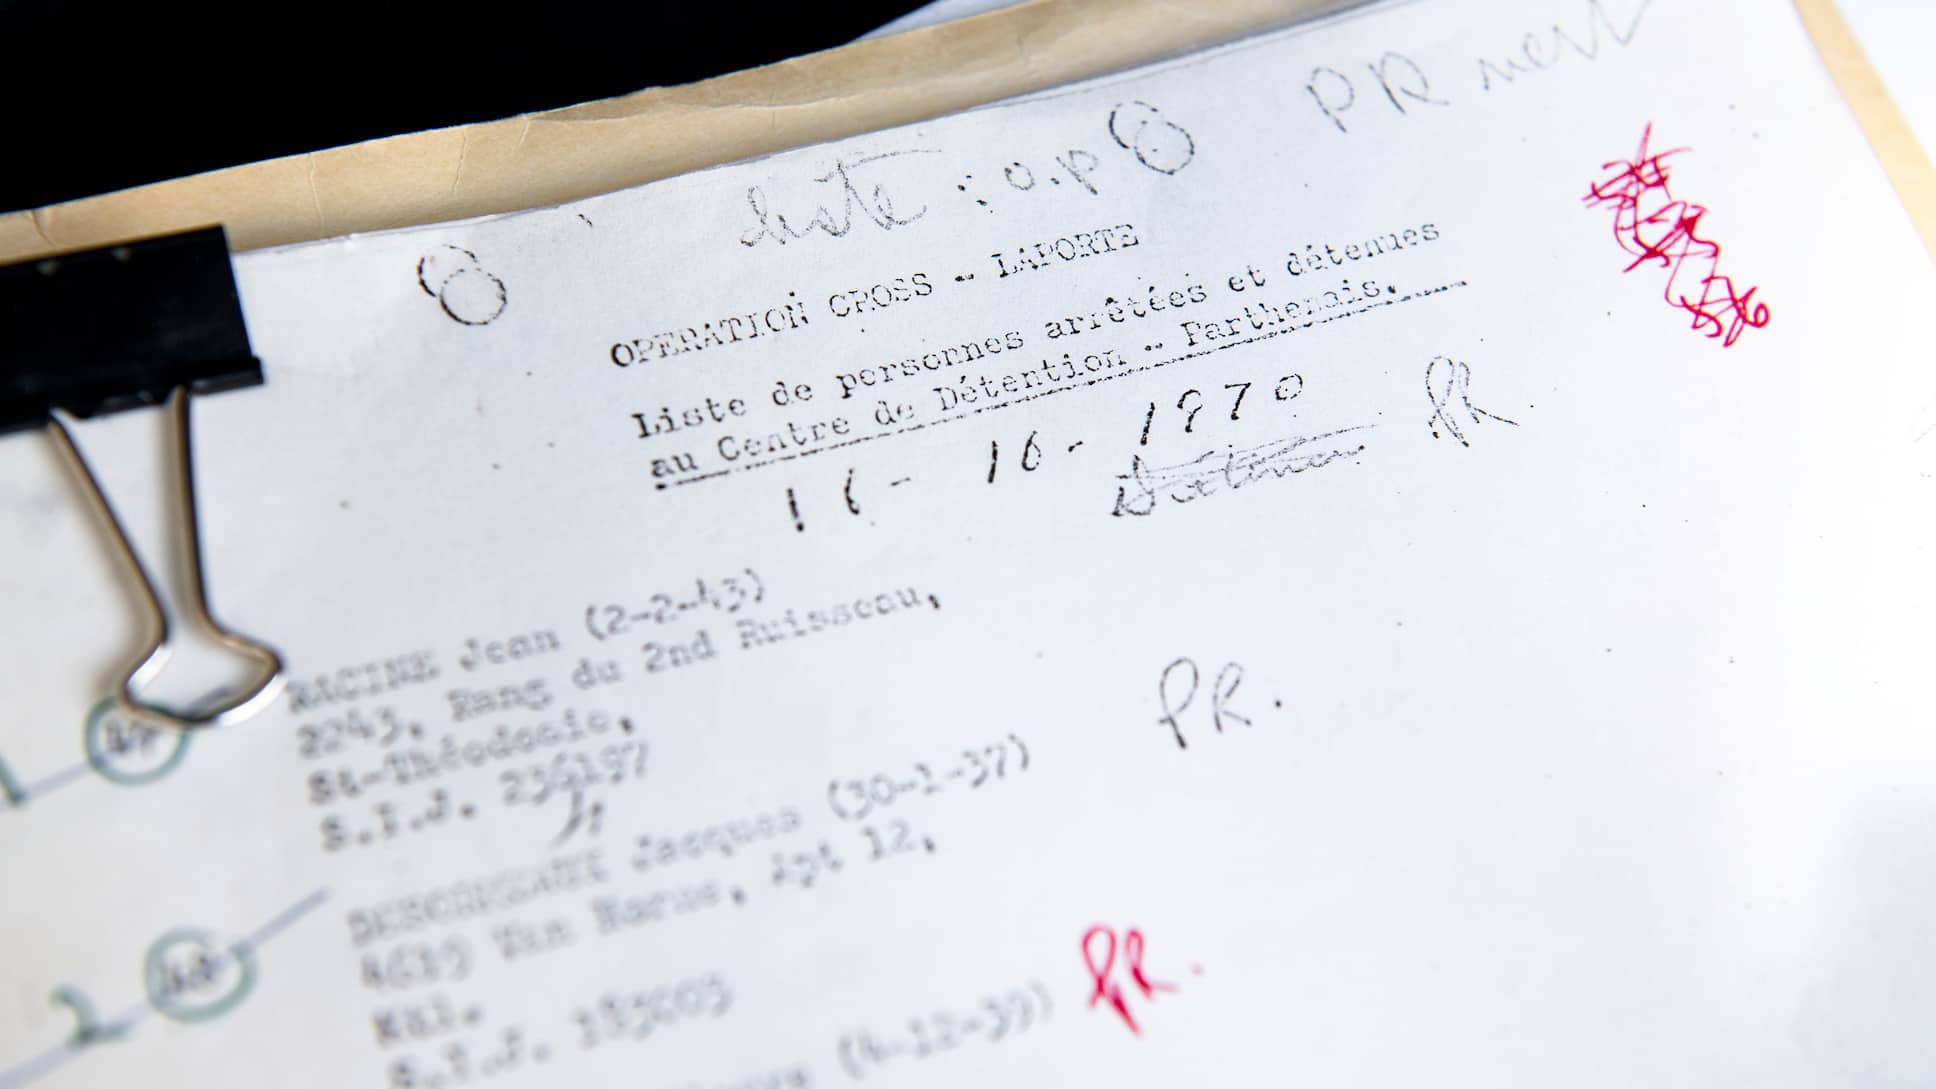 PR
liste : o.p
OPERATION CROSS - LAPORTE
Liste de personnes arrêtées et détenues
au Centre de Détention - Parthenais.
16 - 10 - 1970
PR
RACINE Jean (2-2-43)
2243, Rang du 2nd Ruisseau,
St-Théodosie,
S.P.J. 236197
PR.
Jacques (30-1-37)
4619 Van Horne, Apt 12,
Mtl.
S.P.J. 183605
(4-12-39)
PR.
1
2